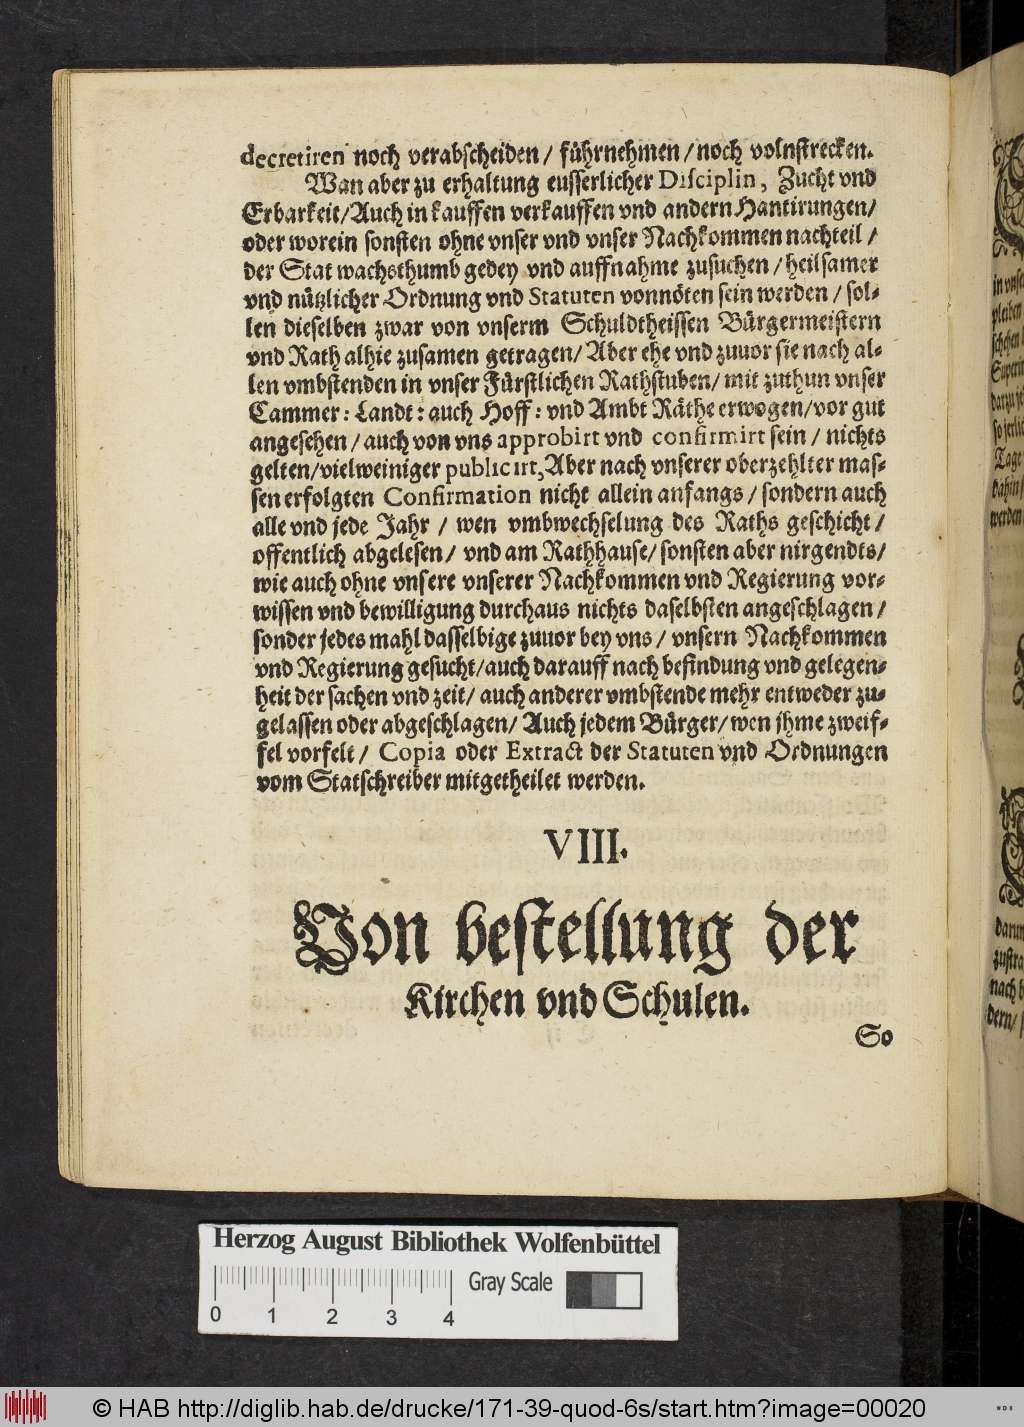 decretiren noch verabscheiden / führnehmen / noch volnstrecken.
Wan aber zu erhaltung eusserlicher Disciplin, Zucht vnd
Erbarkeit / Auch in kauffen verkauffen vnd andern Hantirungen /
oder worein sonsten ohne vnser vnd vnser Nachkommen nachteil /
der Stat wachsthumb gedey vnd auffnahme zusuchen / heilsamer
vnd nützlicher Ordnung vnd Statuten vonnöten sein werden / sol-
len dieselben zwar von vnserm Schuldtheissen Bürgermeistern
vnd Rath alhie zusamen getragen / Aber ehe vnd zuuor sie nach al-
len vmbstenden in vnser Fürstlichen Rathstuben / mit zuthun vnser
Cammer: Landt: auch Hoff: vnd Ambt Räthe erwogen / vor gut
angesehen / auch von vns approbirt vnd confirmirt sein / nichts
gelten / vielweiniger publicirt, Aber nach vnserer oberzehlter mas-
sen erfolgten Confirmation nicht allein anfangs / sondern auch
alle vnd jede Jahr / wen vmbwechselung des Raths geschicht /
offentlich abgelesen / vnd am Rathhause / sonsten aber nirgendts /
wie auch ohne vnsere vnserer Nachkommen vnd Regierung vor-
wissen vnd bewilligung durchaus nichts daselbsten angeschlagen /
sonder jedes mahl dasselbige zuuor bey vns / vnsern Nachkommen
vnd Regierung gesucht / auch darauff nach befindung vnd gelegen-
heit der sachen vnd zeit / auch anderer vmbstende mehr entweder zu-
gelassen oder abgeschlagen / Auch jedem Bürger / wen jhme zweif-
fel vorfelt / Copia oder Extract der Statuten vnd Ordnungen
vom Statschreiber mitgetheilet werden.
VIII.
Von bestellung der
Kirchen vnd Schulen.
So
Herzog August Bibliothek Wolfenbüttel
Gray Scale
0 1 2 3 4
© HAB http://diglib.hab.de/drucke/171-39-quod-6s/start.htm?image=00020